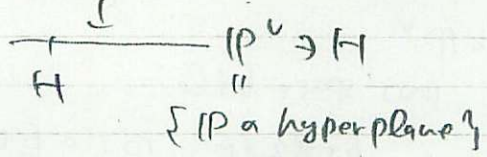 ℙ^∨ ∋ H
H
"
{ℙ a hyperplane}